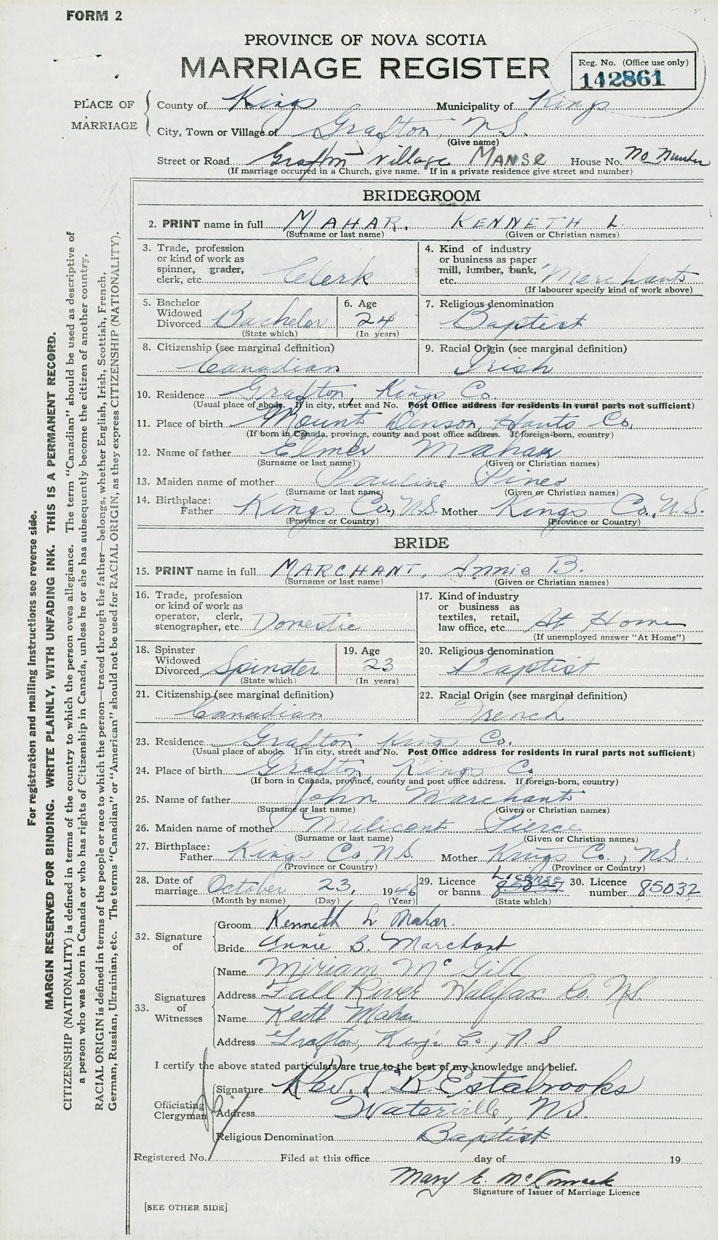 FORM 2
PROVINCE OF NOVA SCOTIA
MARRIAGE REGISTER
Reg. No. (Office use only)
142861
PLACE OF MARRIAGE
County of Kings Municipality of Kings
City, Town or Village of Grafton, N.S.
(Give name)
Street or Road Grafton Village MANSE House No. No Number
(If marriage occurred in a Church, give name. If in a private residence give street and number)
BRIDEGROOM
2. PRINT name in full MAHAR, KENNETH L.
(Surname or last name) (Given or Christian names)
3. Trade, profession or kind of work as spinner, grader, clerk, etc. Clerk
4. Kind of industry or business as paper mill, lumber, bank, etc. Merchants
(If labourer specify kind of work above)
5. Bachelor Widowed Divorced Bachelor
(State which)
6. Age 24
(In years)
7. Religious denomination Baptist
8. Citizenship (see marginal definition) Canadian
9. Racial Origin (see marginal definition) Irish
10. Residence Grafton, Kings Co.
(Usual place of abode. If in city, street and No. Post Office address for residents in rural parts not sufficient)
11. Place of birth Mount Denson, Hants Co.
(If born in Canada, province, county and post office address. If foreign-born, country)
12. Name of father Elmer Mahar
(Surname or last name) (Given or Christian names)
13. Maiden name of mother Pauline Pineo
(Surname or last name) (Given or Christian names)
14. Birthplace: Father Kings Co., N.S. Mother Kings Co., N.S.
(Province or Country) (Province or Country)
BRIDE
15. PRINT name in full MARCHANT, Annie B.
(Surname or last name) (Given or Christian names)
16. Trade, profession or kind of work as operator, clerk, stenographer, etc Domestic
17. Kind of industry or business as textiles, retail, law office, etc. At Home
(If unemployed answer "At Home")
18. Spinster Widowed Divorced Spinster
(State which)
19. Age 23
(In years)
20. Religious denomination Baptist
21. Citizenship (see marginal definition) Canadian
22. Racial Origin (see marginal definition) French
23. Residence Grafton Kings Co.
(Usual place of abode. If in city, street and No. Post Office address for residents in rural parts not sufficient)
24. Place of birth Grafton Kings C.
(If born in Canada, province, county and post office address. If foreign-born, country)
25. Name of father John Marchant
(Surname or last name) (Given or Christian names)
26. Maiden name of mother Milicent Pierce
(Surname or last name) (Given or Christian names)
27. Birthplace: Father Kings Co, N.S. Mother Kings Co., N.S.
(Province or Country) (Province or Country)
28. Date of marriage October 23, 1946
(Month by name) (Day) (Year)
29. Licence or banns License
(State which)
30. Licence number 85032
32. Signature of
Groom Kenneth L. Mahar.
Bride Annie B. Marchant
33. Signatures of Witnesses
Name Miriam McGill
Address Fall River Halifax Co. N.S.
Name Keith Mahar
Address Grafton, Kings Co., N.S
I certify the above stated particulars are true to the best of my knowledge and belief.
Officiating Clergyman
Signature Rev. K. Estabrooks
Address Waterville, N.S
Religious Denomination Baptist
Registered No. Filed at this office day of 19
Mary E. McCormack
Signature of Issuer of Marriage Licence
[SEE OTHER SIDE]
For registration and mailing instructions see reverse side.
MARGIN RESERVED FOR BINDING. WRITE PLAINLY, WITH UNFADING INK. THIS IS A PERMANENT RECORD.
CITIZENSHIP (NATIONALITY) is defined in terms of the country to which the person owes allegiance. The term "Canadian" should be used as descriptive of
a person who was born in Canada or who has rights of Citizenship in Canada, unless he or she has subsequently become the citizen of another country.
RACIAL ORIGIN is defined in terms of the people or race to which the person—traced through the father—belongs, whether English, Irish, Scottish, French,
German, Russian, Ukrainian, etc. The terms "Canadian" or "American" should not be used for RACIAL ORIGIN, as they express CITIZENSHIP (NATIONALITY).